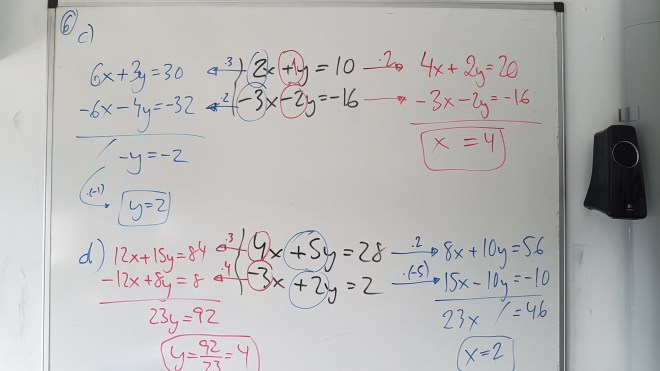 6
c)
6x+3y=30 ·3 2x+1y=10 ·2 4x+2y=20
-6x-4y=-32 ·2 -3x-2y=-16 -3x-2y=-16
/ -y=-2 x =4
·(-1) y=2
d) 12x+15y=84 ·3 4x+5y=28 ·2 8x+10y=56
-12x+8y=8 ·4 -3x+2y=2 ·(-5) 15x-10y=-10
23y=92 23x / =46
y=92/23=4 x=2